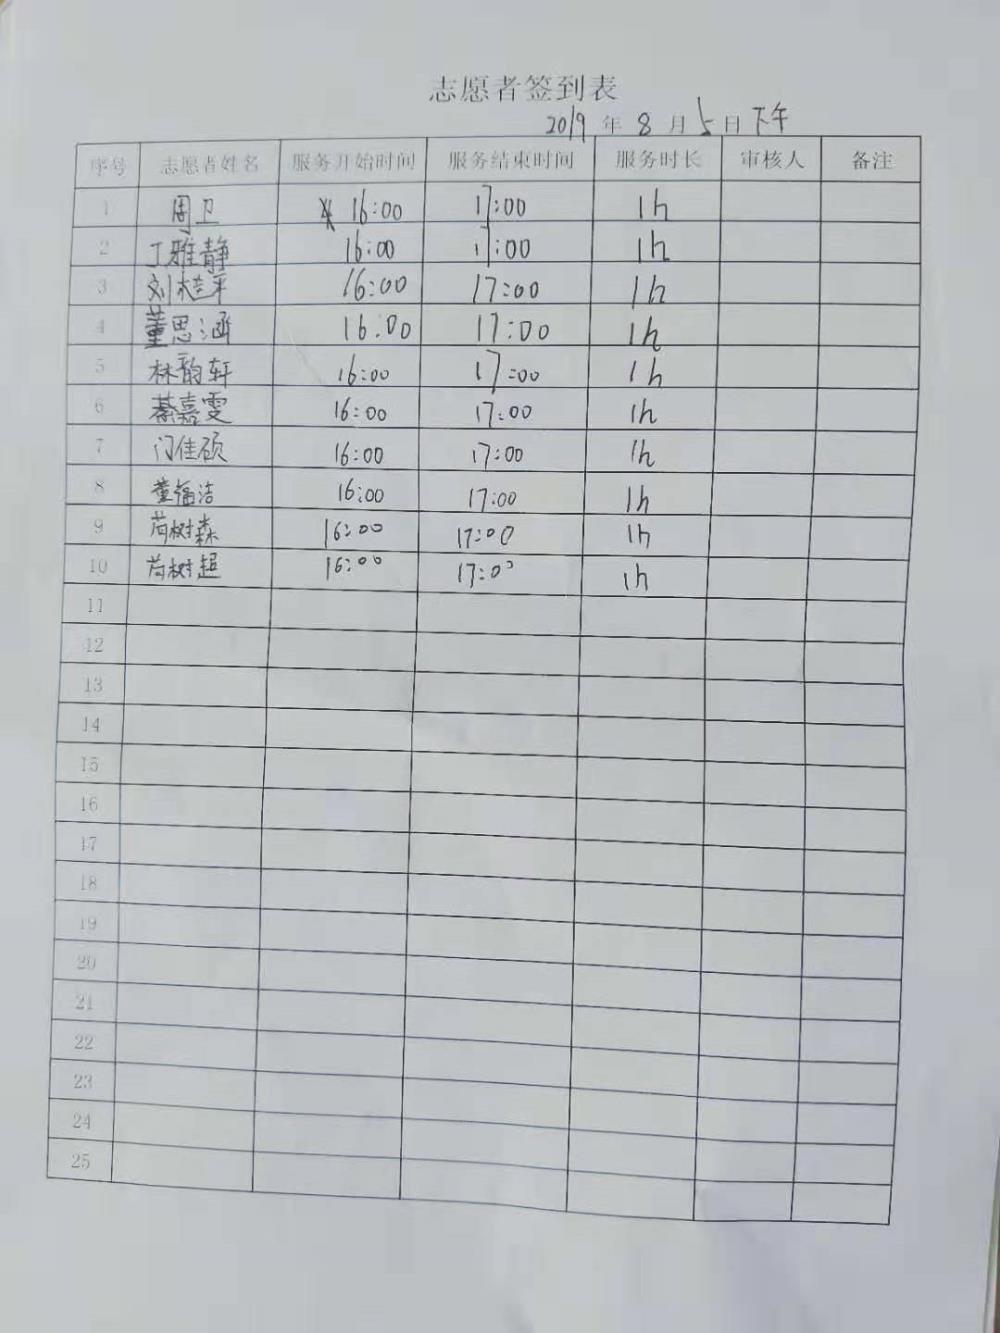 志愿者签到表
2019 年 8 月 5 日 下午
序号 志愿者姓名 服务开始时间 服务结束时间 服务时长 审核人 备注
1 周卫 16:00 17:00 1h
2 丁雅静 16:00 17:00 1h
3 刘桂平 16:00 17:00 1h
4 董思涵 16:00 17:00 1h
5 林韵轩 16:00 17:00 1h
6 綦嘉雯 16:00 17:00 1h
7 门佳硕 16:00 17:00 1h
8 董福洁 16:00 17:00 1h
9 苪树森 16:00 17:00 1h
10 苪树超 16:00 17:00 1h
11
12
13
14
15
16
17
18
19
20
21
22
23
24
25